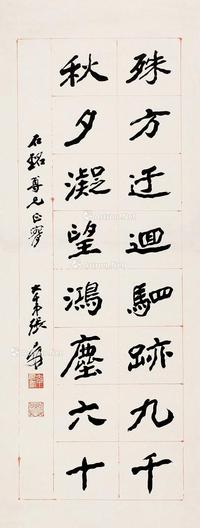 殊方迂迴駟跡九千
秋夕凝望鴻塵六十
石銘尊兄正腕
大千弟張爰